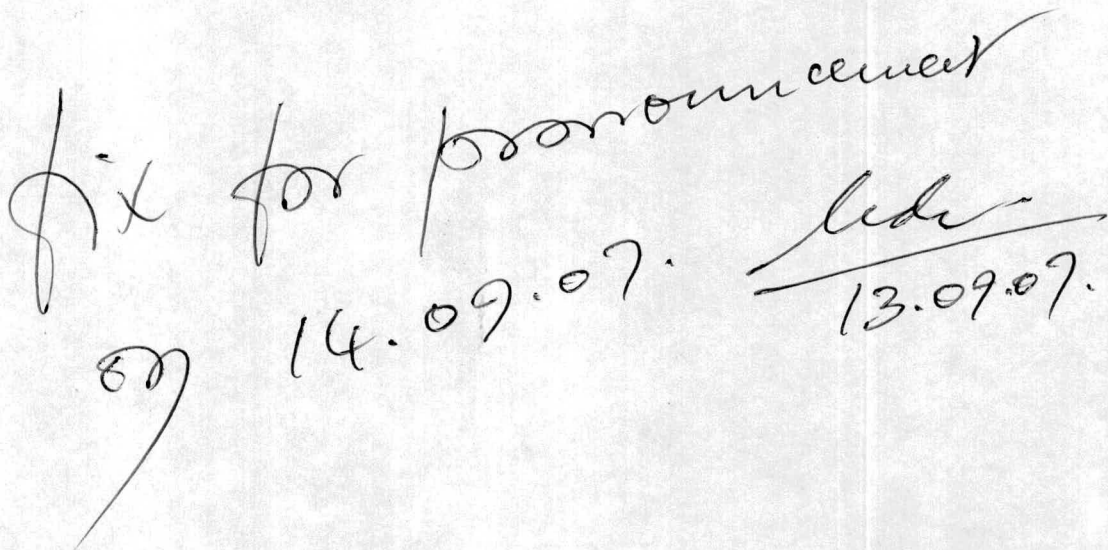 fix for pronouncement
on 14.09.07.
13.09.07.